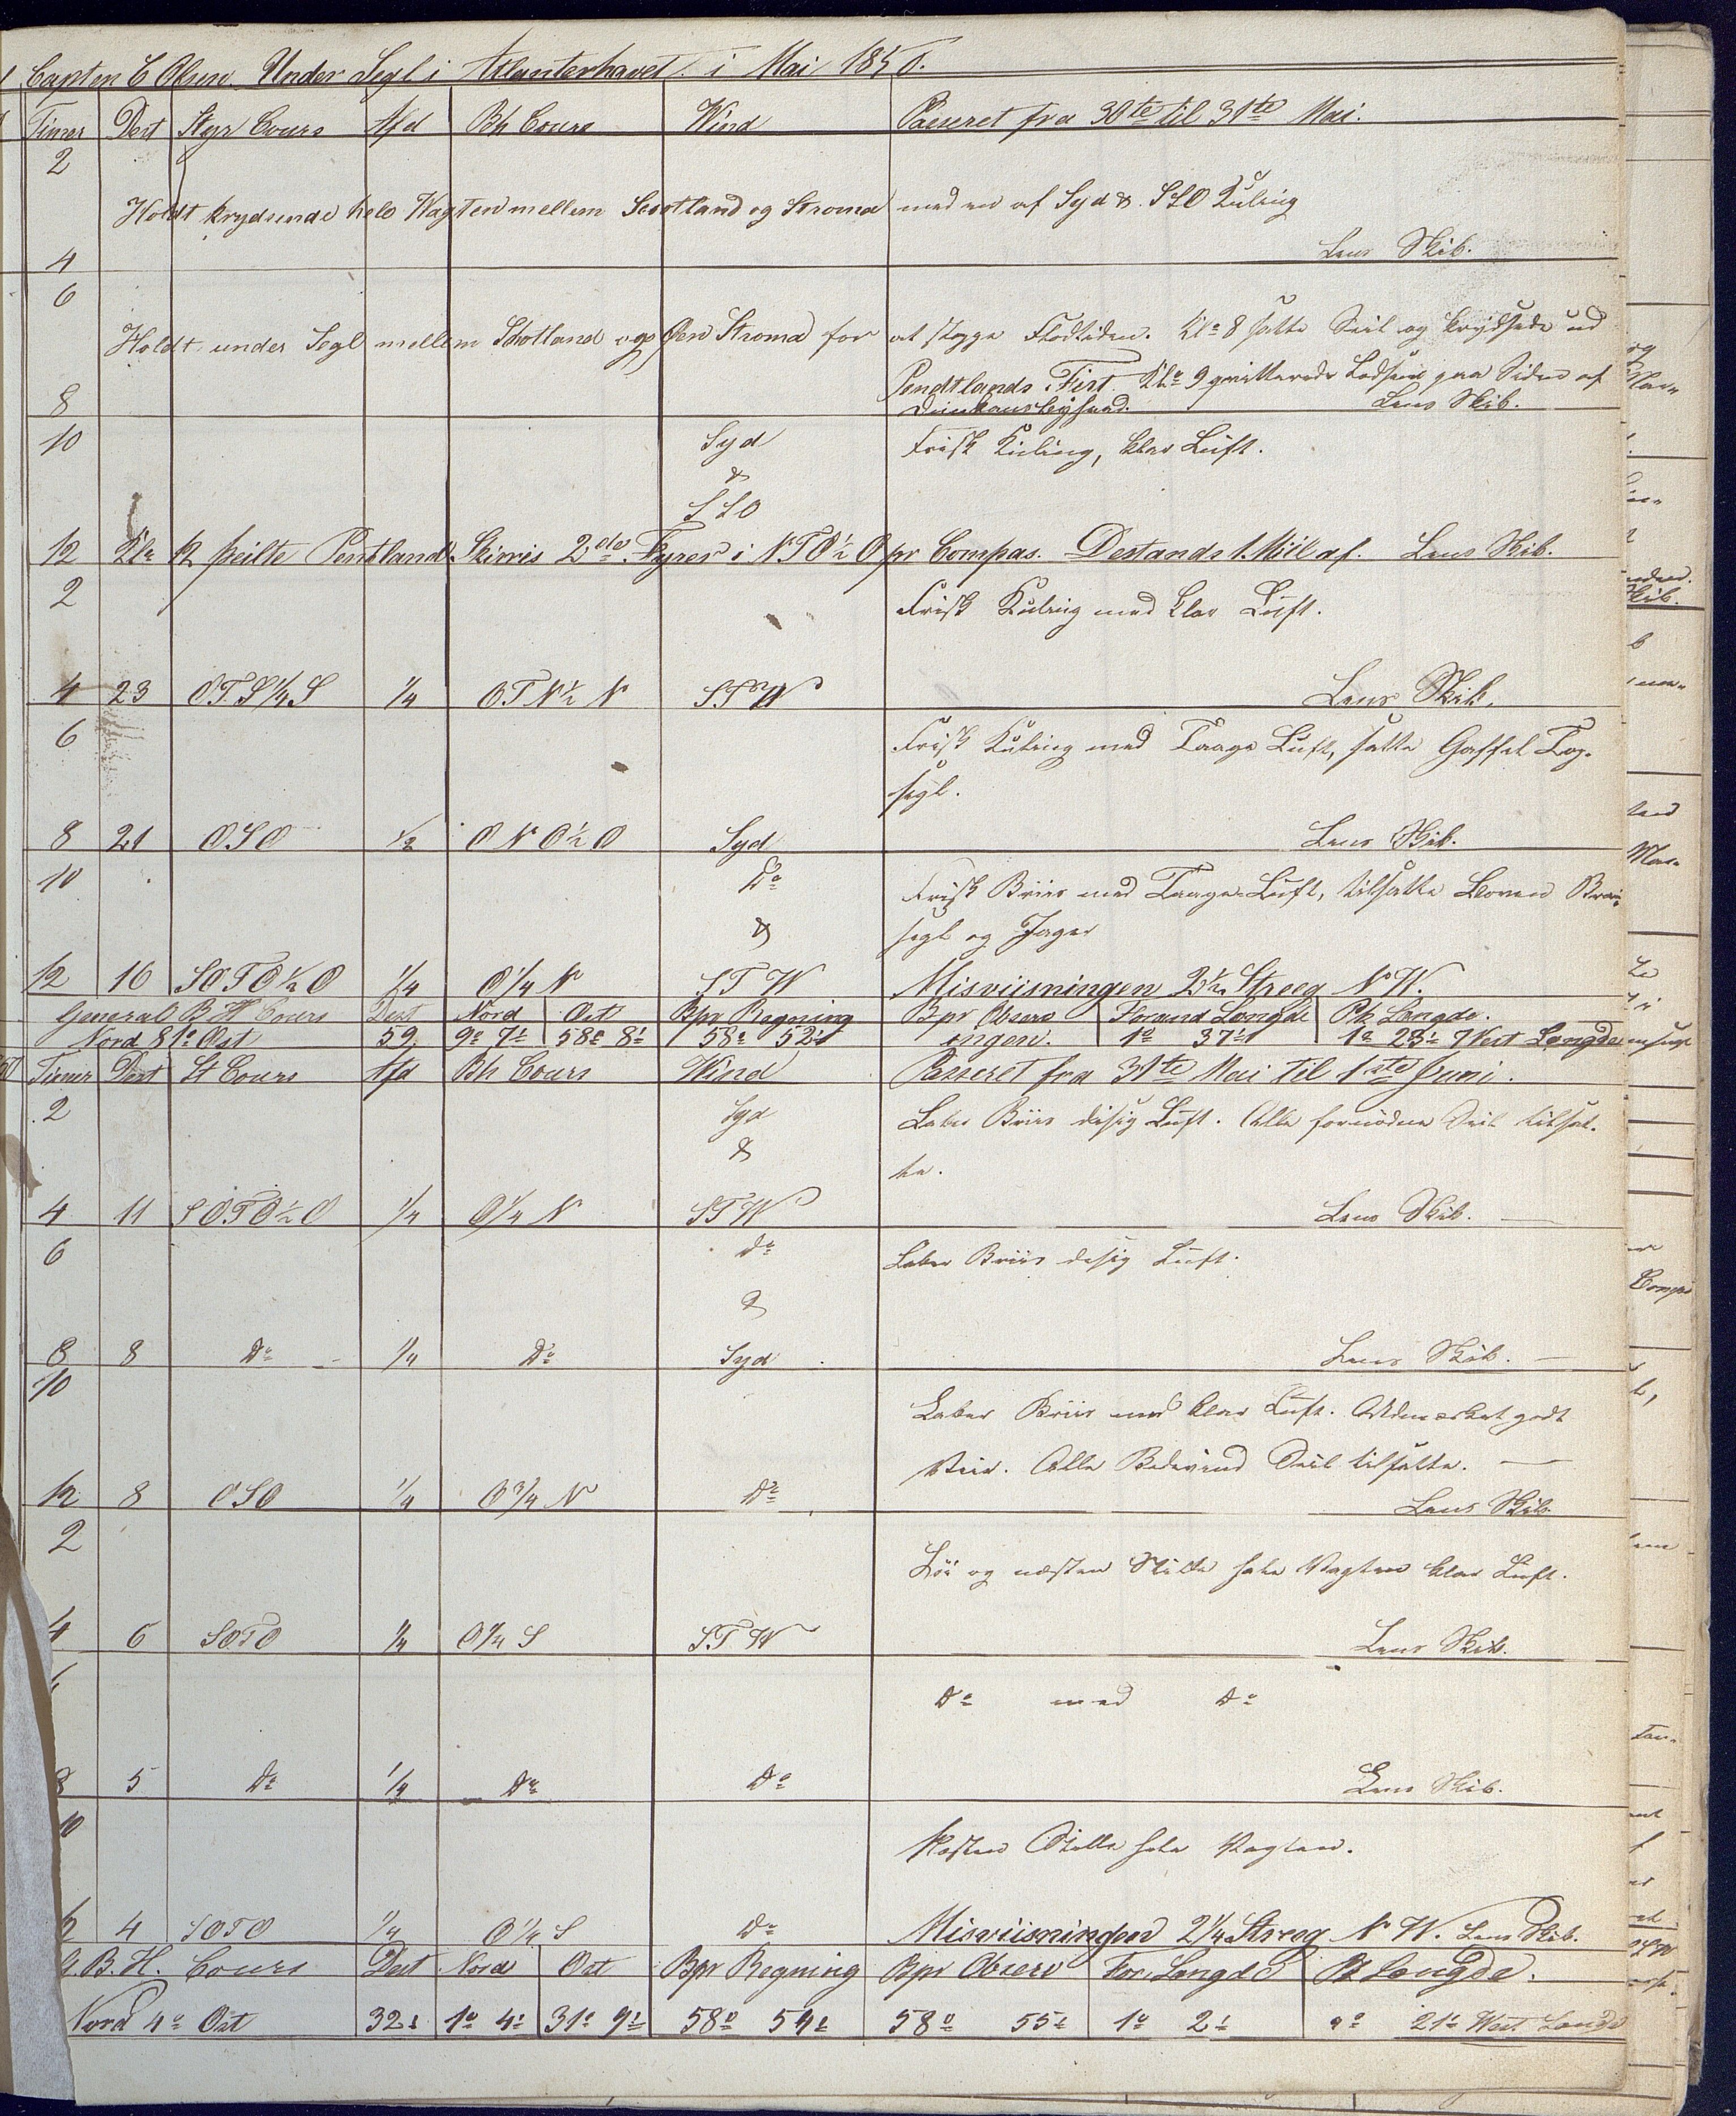 Capten C Olsen. Under Segl i Atlanterhavet. i Mai 1850.
Timer Dest Styr Cours Afd Bh Cours Wind Passeret fra 30te til 31te Mai.
2
Holdt krydsende hele Wagten mellem Scotland og Stroma med en af Syd & SSO Kuling
4 Lens Skib.
6
Holdt under Segl mellem Skotland og Øen Stroma for at stoppe Flodtiden. Kl: 8 satte Seil og krydsede ud
Pendtlands Firt. Kl: 9 qvitterede Lodsen paa Siden af
8 Lens Skib.
10 Syd Frisk Kuling, klar Luft.
&
SSO
12 Kl: 12 peilte Pentland Skirris 2de Fyrer i NTO½O pr Compas. Destande 1 Miil af. Lens Skib.
2 Frisk Kuling med klar Luft.
4 23 OTS¼S ¼ OTN½N STW Lens Skib.
6 Frisk Kuling med Taage Luft, satte Gaffel Top-
segl.
8 21 OSO ½ ONO½O Syd Lens Skib.
10 Do Frisk Briis med Taage-Luft, tilsatte Boven Bram
& segl og Jager
12 16 SOTO½O ¼ O¼N STW Misviisningen 2½ Streeg NW.
General B H Cours Dest Nord Ost Bpr Regning Bpr Observ Forand Længde Ph Længde.
Nord 81° Ost 59 9° 7' 58° 8' 58° 52' ingen. 1° 37' 1° 23' West Længde
Timer Dest St Cours Afd Bh Cours Wind Passeret fra 31te Mai til 1ste Juni.
2 Syd Laber Briis disig Luft. Alle fornødne Seil tilsat-
& te.
4 11 SOTO½O ¼ O¼N STW Lens Skib.
6 Do Laber Briis disig Luft.
&
8 8 Do ¼ Do Syd Lens Skib.
10 Laber Briis med klar Luft. Udmærket godt
Veir. Alle Bidevind Seil tilsatte.
12 8 OSO ¼ O¾N Do Lens Skib.
2 Løi og næsten Stille hele Vagten klar Luft.
4 6 SOTO ¼ O¼S STW Lens Skib.
Do med Do
8 5 Do ¼ Do Do Lens Skib.
10 Næsten Stille hele Vagten.
12 4 SOTO ¼ O¼S Do Misviisningen 2¼ Streeg NW. Lens Skib.
G. B. H. Cours Dest Nord Ost Bpr Regning Bpr Observ For. Længde Ph Længde.
Nord 4° Ost 32' 1° 4' 31° 9' 58° 54' 58° 55' 1° 2' 21' West Længde